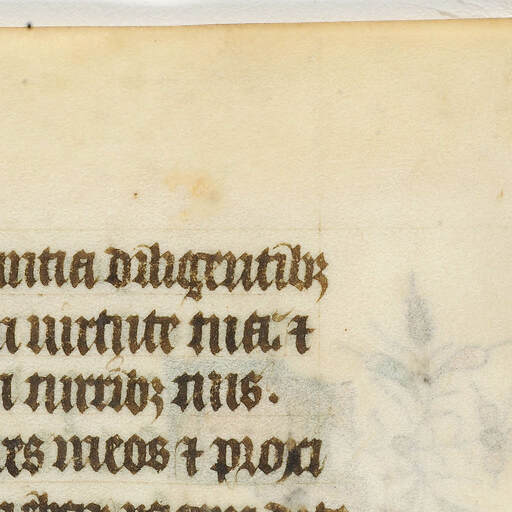 untia diligentibꝫ
uirtute tua. ⁊
turribꝫ tuis.
res meos ⁊ proxi